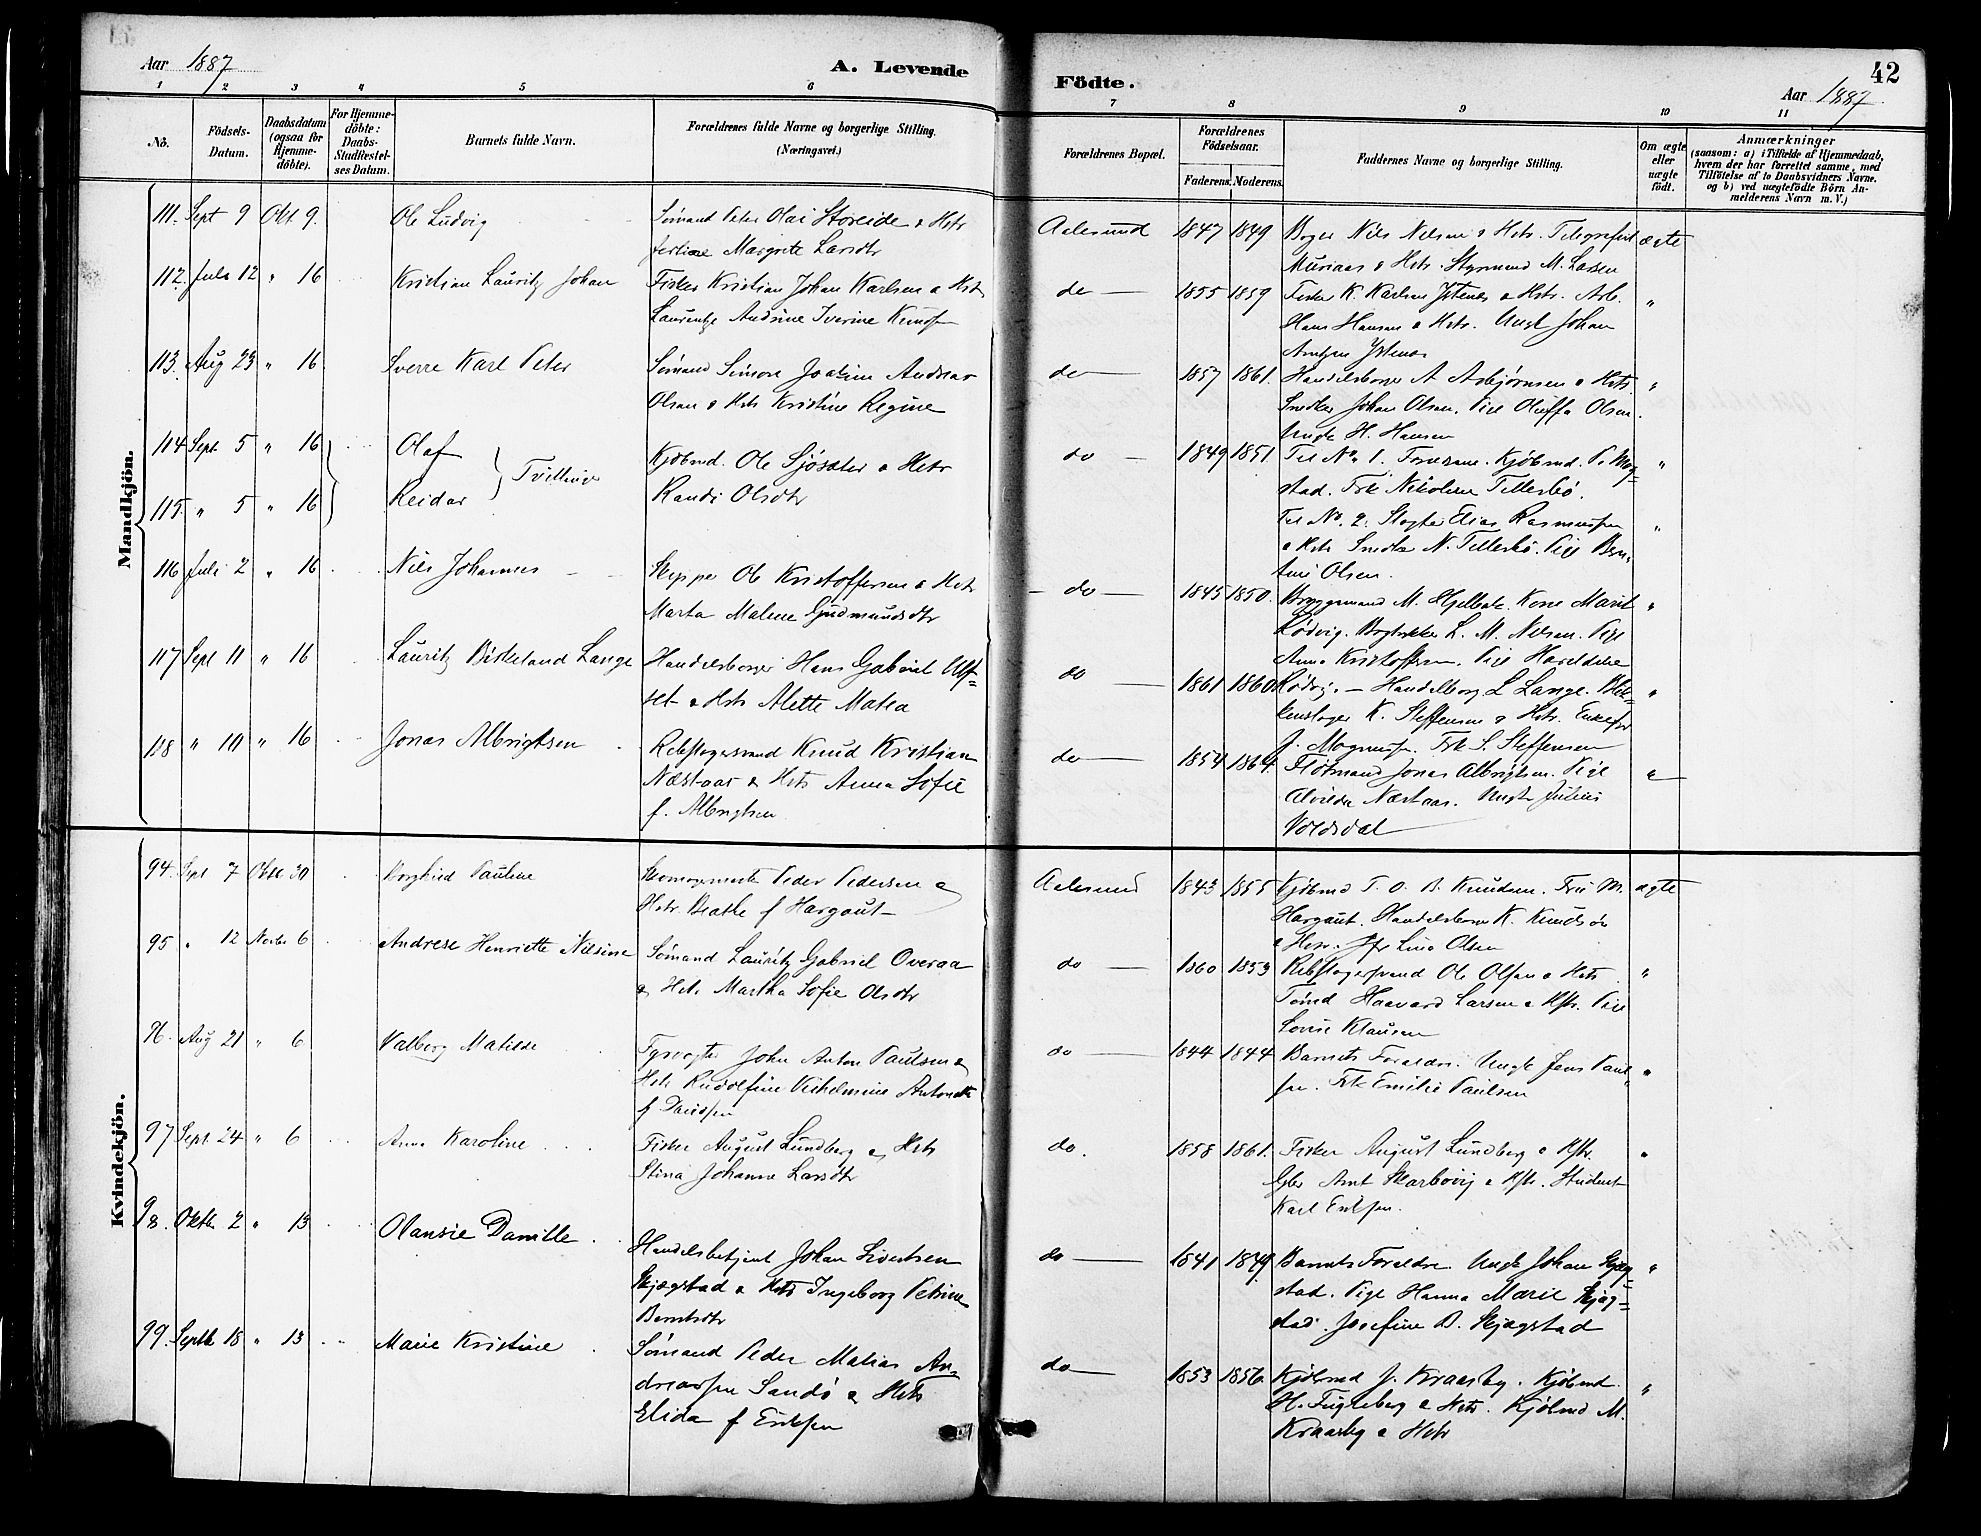 Aar 1887
A. Levende
Födte.
42
Aar 1887.
1 2 3 4 5 6 7 8 9 10 11
No.
Födsels-Datum.
Daabsdatum (ogsaa for Hjemmedöbte).
For Hjemmedöbte: Daabs-Stadfæstelses Datum.
Barnets fulde Navn.
Forældrenes fulde Navne og borgerlige Stilling. (Næringsvei.)
Forældrenes Bopæl.
Forældrenes Födselsaar.
Faderens. Moderens.
Faddernes Navne og borgerlige Stilling.
Om ægte eller uægte födt.
Anmærkninger
(saasom: a) i Tilfælde af Hjemmedaab, hvem der har forrettet samme, med Tilföielse af to Daabsvidners Navne. og b) ved uægtefödte Börn Anmelderens Navn m. V.)
Mandkjön.
111. Sept 9 Okt 9. Ole Ludvig
Sømand Peter Olai Storeide & Hstr
Margrete Larsdtr
Aalesund 1847 1849
Nils Nelsen & Hstr. Telegrafist
& Hstr. Styrmand M. Larsen
ægte
112. Juli 12 " 16 Kristian Lauritz Johan
Fisker Kristian Johan Karlsen & Hstr
Laurentze Andrine Iverine
do 1855 1859
Fisker K. Karlsen Ystenes & Hstr. Arb.
Hans Hansen & Hstr. Ungk Johan
Arntzen Ystenes
"
113. Aug 23 " 16 Sverre Karl Peter
Sømand Simon Joakim Andreas
Olsen & Hstr Kristine Regine
do 1857 1861.
Handelsborger A Asbjørnsen & Hstr
Snedker Johan Olsen. Pige Oluffa Olsen.
Ungk H. Hansen
"
114 Sept 5 " 16 Olaf
115. " 5 " 16 Reidar
Tvillinger
Kjøbmd. Ole Sjösæter & Hstr
Randi Olsdtr
do 1849 1851.
Til No. 1. Kjøbmd. P. Mog-
stad. Frk Nikoline Tellesbö.
Til No. 2. Slagter Elias Rasmussen
& Hstr Snedker N. Tellesbö. Pige Bern-
tine Olsen.
"
116 Juli 2 " 16 Nils Johannes
Skipper Ole Kristoffersen & Hstr
Marta Malene Gudmundsdtr
do 1845 1850.
Bryggemand M. Hjelbak. Kone Marit
Rødvig. Bogtrykker L. M. Nelsen. Pige
Anna Kristoffersen. Pige
Rødvig.
"
117 Sept 11 " 16 Lauritz Birkeland Lange
Handelsborger Hans Gabriel Ulf-
set & Hstr Alette Matea
do 1861 1860
Handelsborg L Lange. Blik-
kenslager K. Steffensen & Hstr.
J. Magnussen. Frk S. Steffensen
"
118 " 10 " 16 Jonas Albrigtsen
Rebslagersvend Knud Kristian
Næstaas & Hstr Anna Sofie
f. Albrigtsen
do 1854 1864.
Flötmand Jonas Albrigtsen. Pige
Alvilde Næstaas. Ungk Julius
Voldsdal
"
Kvindekjön.
94. Sept 7 Oktb 30 Borghild Pauline
Skomagermester Peder Pedersen &
Hstr Beathe f Hargaut
Aalesund 1843 1855
Kjöbmd P. O. B. Knudsen. Fru M.
Hargaut. Handelsborger K. Knudsön
& Hstr. Jfr Lina Olsen
ægte
95 " 12 Novbr 6 Andrese Henriette Nilsine
Sømand Lauritz Gabriel Overaa
& Hstr Martha Sofie Olsdtr
do 1860 1853
Rebslagersvend Ole Olsen & Hstr
Tömd Haavard Larsen & Hstr. Pige
Lovise Klausen
"
96. Aug 21 " 6 Valborg Matilde
Fyrvogter John Anton Paulsen &
Hstr Rudolfine Vilhelmine Antonette
f Davidsen
do 1844 1844
Barnets Forældre. Ungk Jens Paul-
sen. Frk Emilie Paulsen
"
97 Sept 24 " 6 Anna Karoline
Fisker August Lundberg & Hstr
Stina Johanne Larsdtr
do. 1858 1861.
Fisker August Lundberg & Hstr.
Gbr Arnt Skarbövig & Hstr. Student
Karl Eriksen.
"
98. Oktb 2 " 13 Olansie Danille
Handelsbetjent Johan Sivertsen
Skjægstad & Hstr Ingeborg Petrine
Berntsdtr
do 1841 1849
Barnets Forældre. Ungk Johan Skjæg-
stad. Pige Hanna Marie Skjæg-
stad. Josefine B. Skjægstad
"
99. Septb 18 " 13 Marie Kristine
Sømand Peder Matias An-
dreassen Sandö & Hstr
Elida f Eriksen
do 1853 1856
Kjöbmd J. Kraasby. Kjöbmd
H. Fugleberg & Hstr. Kjöbmd M.
Kraasby & Hstr
"